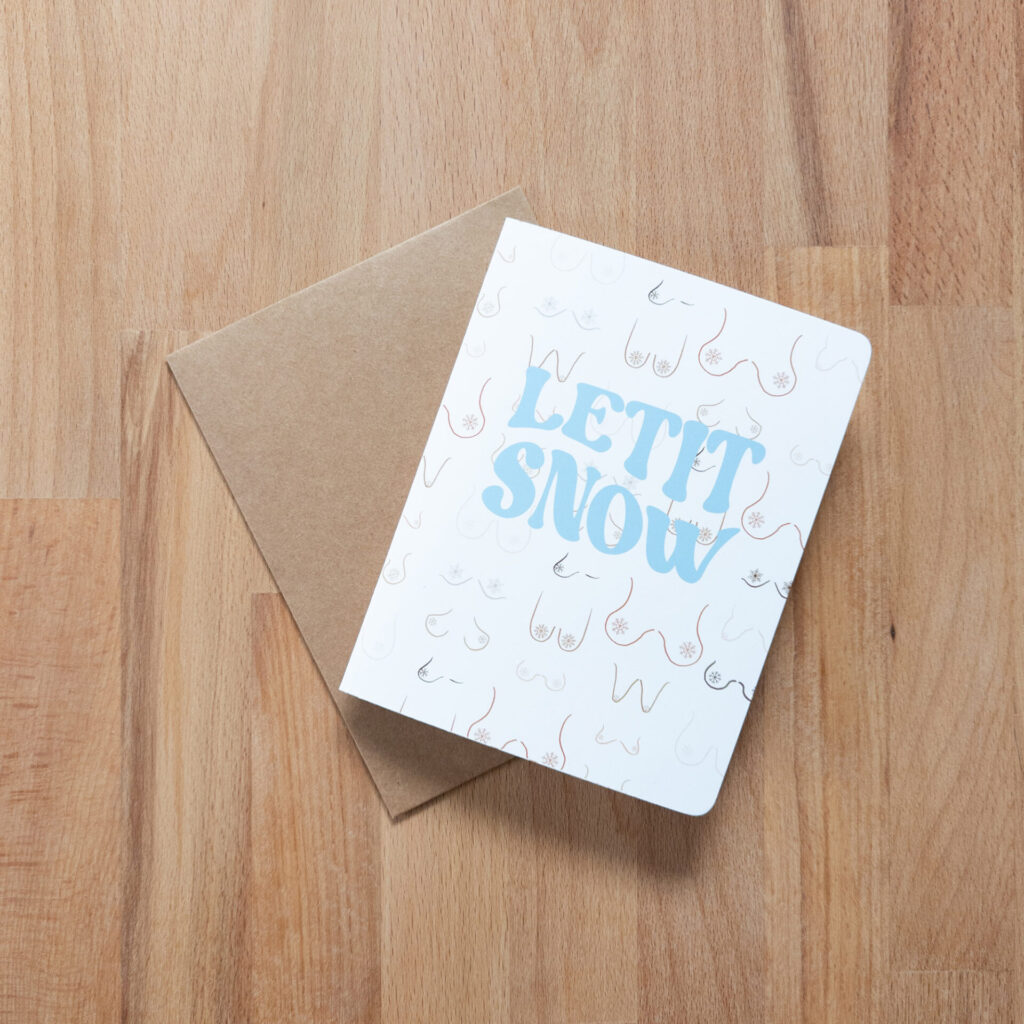 LET IT
SNOW